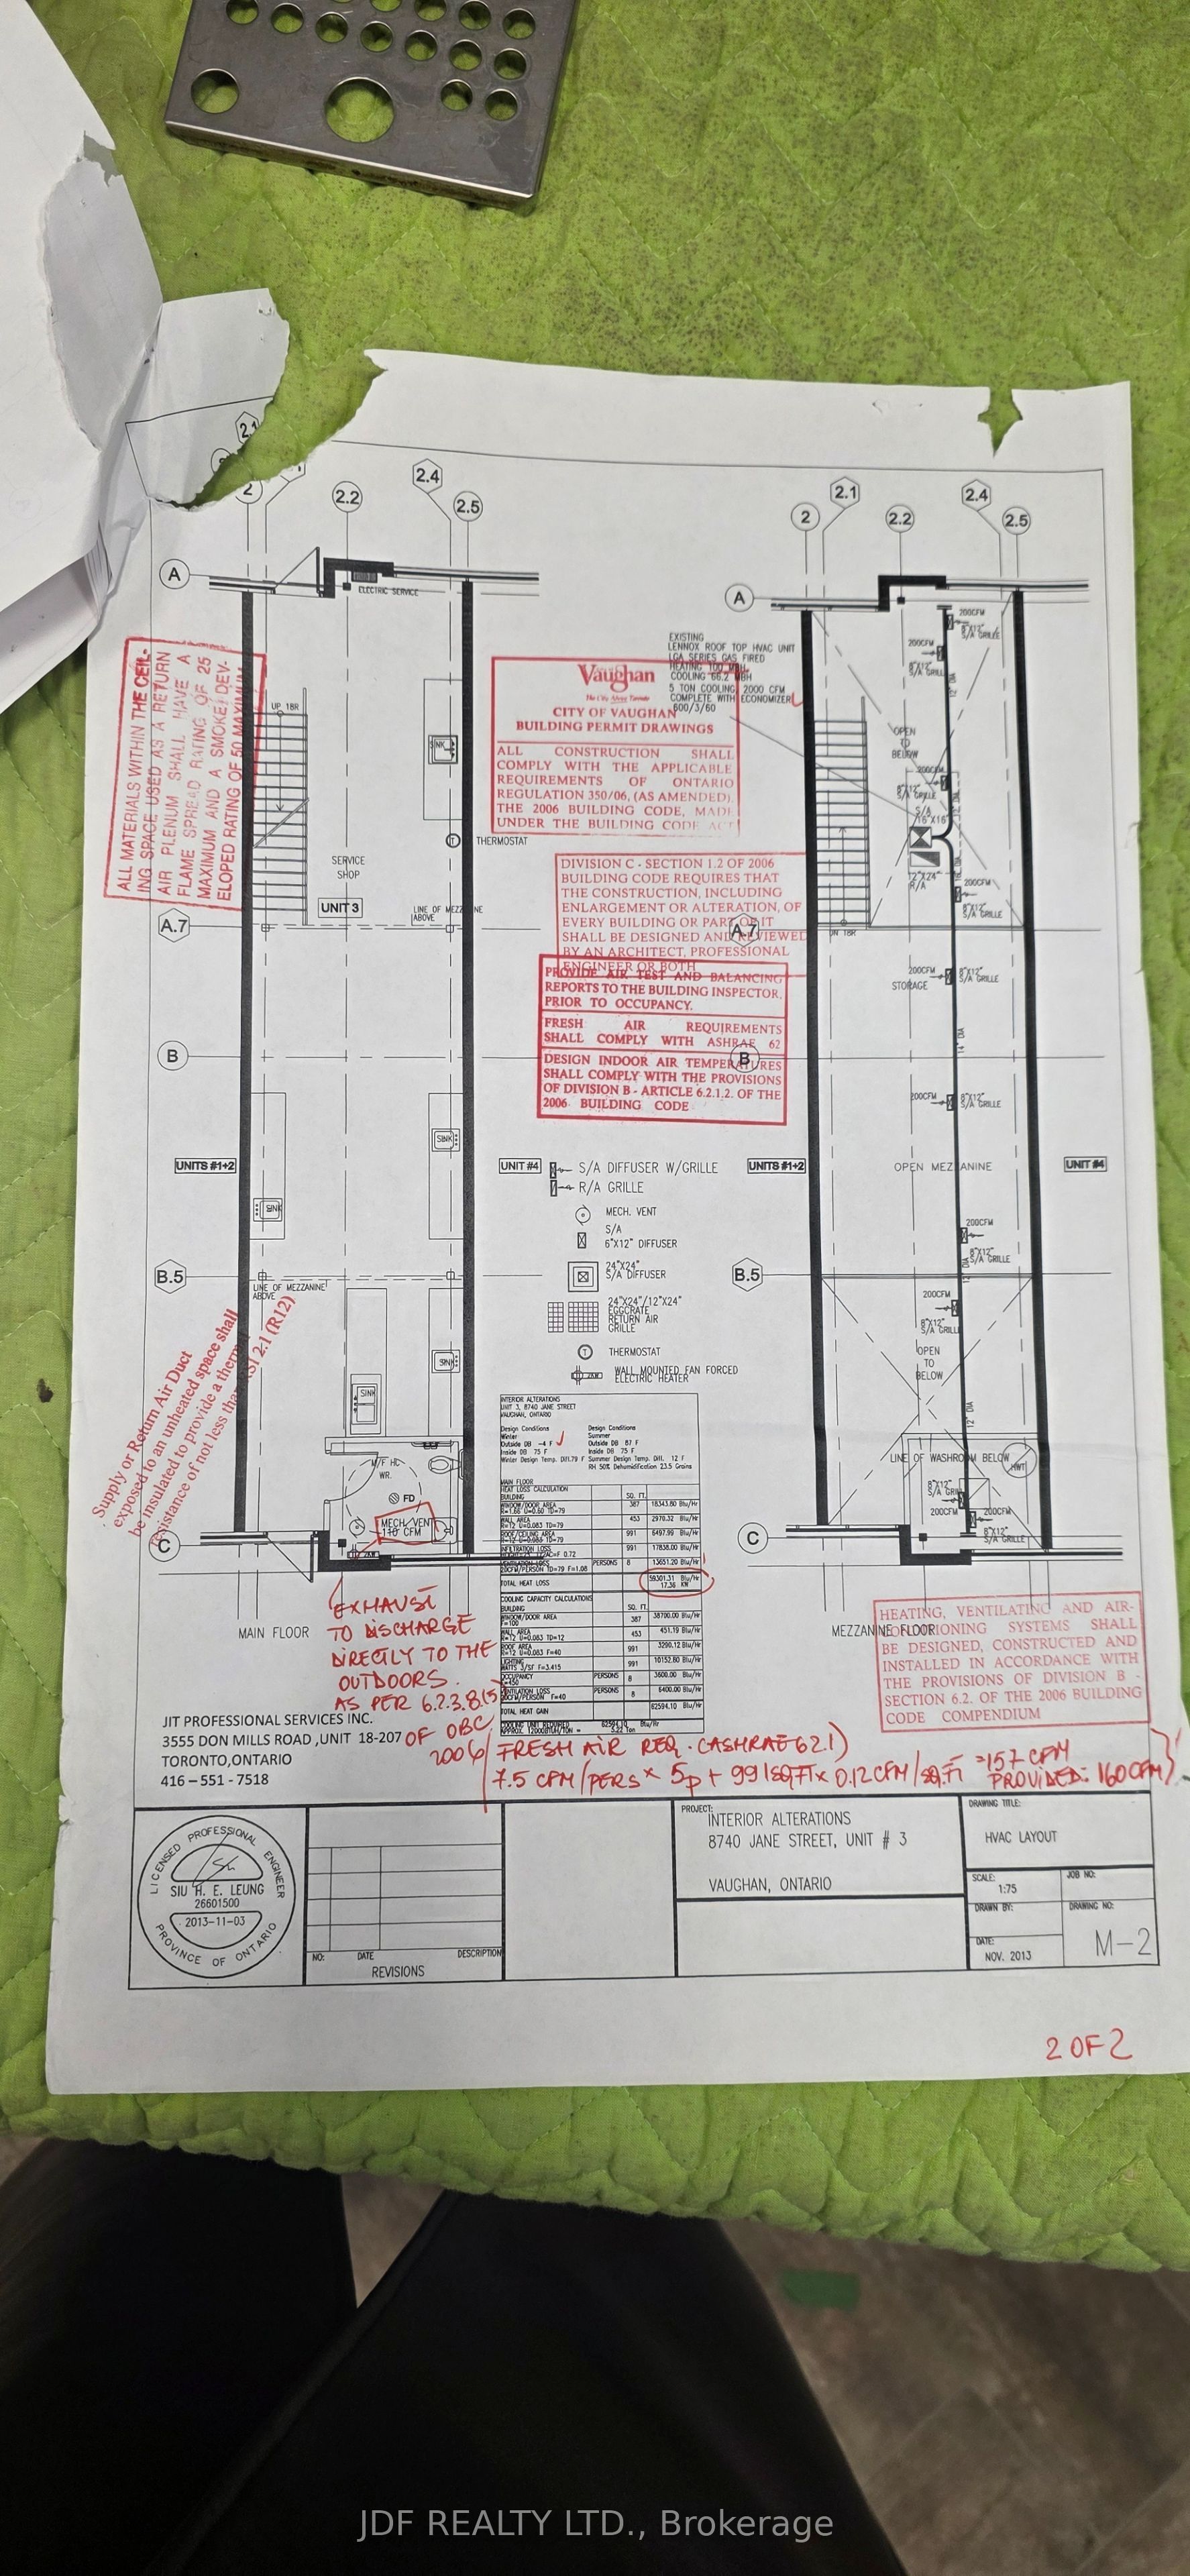 2.1
2
2.2
2.4
2.5
A
ELECTRIC SERVICE
UP 18R
SINK
T
THERMOSTAT
SERVICE
SHOP
UNIT 3
LINE OF MEZZANINE
ABOVE
A.7
B
UNITS #1+2
SINK
SINK
UNIT #4
B.5
LINE OF MEZZANINE
ABOVE
SINK
SINK
WR.
FD
MECH. VENT
110 CFM
C
MAIN FLOOR
ALL MATERIALS WITHIN THE CEIL-
ING SPACE USED AS A RETURN
AIR PLENUM SHALL HAVE A
FLAME SPREAD RATING OF 25
MAXIMUM AND A SMOKE DEV-
ELOPED RATING OF 50 MAXIMUM
Supply or Return Air Duct
exposed to an unheated space shall
be insulated to provide a thermal
resistance of not less than RSI 2.1 (R12)
EXISTING
LENNOX ROOF TOP HVAC UNIT
LGA SERIES GAS FIRED
HEATING 100 MBH
COOLING 66.2 MBH
5 TON COOLING 2000 CFM
COMPLETE WITH ECONOMIZER
600/3/60
Vaughan
The City Above Toronto
CITY OF VAUGHAN
BUILDING PERMIT DRAWINGS
ALL CONSTRUCTION SHALL
COMPLY WITH THE APPLICABLE
REQUIREMENTS OF ONTARIO
REGULATION 350/06, (AS AMENDED),
THE 2006 BUILDING CODE, MADE
UNDER THE BUILDING CODE ACT
DIVISION C - SECTION 1.2 OF 2006
BUILDING CODE REQUIRES THAT
THE CONSTRUCTION, INCLUDING
ENLARGEMENT OR ALTERATION, OF
EVERY BUILDING OR PART OF IT
SHALL BE DESIGNED AND REVIEWED
BY AN ARCHITECT, PROFESSIONAL
ENGINEER OR BOTH
PROVIDE AIR TEST AND BALANCING
REPORTS TO THE BUILDING INSPECTOR,
PRIOR TO OCCUPANCY.
FRESH AIR REQUIREMENTS
SHALL COMPLY WITH ASHRAE 62
DESIGN INDOOR AIR TEMPERATURES
SHALL COMPLY WITH THE PROVISIONS
OF DIVISION B - ARTICLE 6.2.1.2. OF THE
2006 BUILDING CODE
S/A DIFFUSER W/GRILLE
R/A GRILLE
MECH. VENT
S/A
6"X12" DIFFUSER
24"X24"
S/A DIFFUSER
24"X24"/12"X24"
EGGCRATE
RETURN AIR
GRILLE
T
THERMOSTAT
WALL MOUNTED FAN FORCED
ELECTRIC HEATER
INTERIOR ALTERATIONS
UNIT 3, 8740 JANE STREET
VAUGHAN, ONTARIO
Design Conditions
Winter
Outside DB -4 F
Inside DB 75 F
Winter Design Temp. Diff.79 F
Design Conditions
Summer
Outside DB 87 F
Inside DB 75 F
Summer Design Temp. Diff. 12 F
RH 50% Dehumidification 23.5 Grains
MAIN FLOOR
HEAT LOSS CALCULATION
BUILDING SQ. FT.
WINDOW/DOOR AREA 387 18343.80 Btu/Hr
WALL AREA 453 2970.32 Btu/Hr
ROOF/CEILING AREA 991 6497.99 Btu/Hr
INFILTRATION LOSS 991 17838.00 Btu/Hr
PERSONS 8 13651.20 Btu/Hr
TOTAL HEAT LOSS 59301.31 Btu/Hr
17.38 KW
COOLING CAPACITY CALCULATIONS
BUILDING SQ. FT.
WINDOW/DOOR AREA 387 38700.00 Btu/Hr
WALL AREA 453 451.19 Btu/Hr
ROOF AREA 991 3290.12 Btu/Hr
LIGHTING 991 10152.80 Btu/Hr
OCCUPANCY PERSONS 8 3600.00 Btu/Hr
VENTILATION LOSS PERSONS 8 6400.00 Btu/Hr
TOTAL HEAT GAIN 62594.10 Btu/Hr
2
2.1
2.2
2.4
2.5
A
200CFM
8"X12"
S/A GRILLE
200CFM
8"X12"
S/A GRILL
12" DIA
OPEN
TO
BELOW
200CFM
8"X12"
S/A GRILLE
S/A
16"X16"
12"X24"
R/A
200CFM
8"X12"
S/A GRILLE
A.7
DN 18R
200CFM
8"X12"
S/A GRILLE
STORAGE
14" DIA
B
200CFM
8"X12"
S/A GRILLE
UNITS #1+2
OPEN MEZZANINE
UNIT #4
200CFM
8"X12"
S/A GRILLE
B.5
200CFM
8"X12"
S/A GRILL
OPEN
TO
BELOW
12" DIA
LINE OF WASHROOM BELOW
HWT
8"X12"
S/A GRILL
200CFM
200CFM
8"X12"
S/A GRILLE
C
MEZZANINE FLOOR
HEATING, VENTILATING AND AIR-
CONDITIONING SYSTEMS SHALL
BE DESIGNED, CONSTRUCTED AND
INSTALLED IN ACCORDANCE WITH
THE PROVISIONS OF DIVISION B -
SECTION 6.2. OF THE 2006 BUILDING
CODE COMPENDIUM
EXHAUST
TO DISCHARGE
DIRECTLY TO THE
OUTDOORS.
AS PER 6.2.3.8.(5)
OF OBC
2006
FRESH AIR REQ. (ASHRAE 62.1)
7.5 CFM/PERS x 5p + 991SQ.FT x 0.12 CFM/SQ.FT = 157 CFM
PROVIDED: 160 CFM
JIT PROFESSIONAL SERVICES INC.
3555 DON MILLS ROAD ,UNIT 18-207
TORONTO,ONTARIO
416 – 551 - 7518
LICENSED PROFESSIONAL ENGINEER
SIU H. E. LEUNG
26601500
2013-11-03
PROVINCE OF ONTARIO
NO: DATE DESCRIPTION
REVISIONS
PROJECT:
INTERIOR ALTERATIONS
8740 JANE STREET, UNIT # 3
VAUGHAN, ONTARIO
DRAWING TITLE:
HVAC LAYOUT
SCALE:
1:75
JOB NO:
DRAWN BY:
DRAWING NO:
M-2
DATE:
NOV. 2013
2 OF 2
JDF REALTY LTD., Brokerage